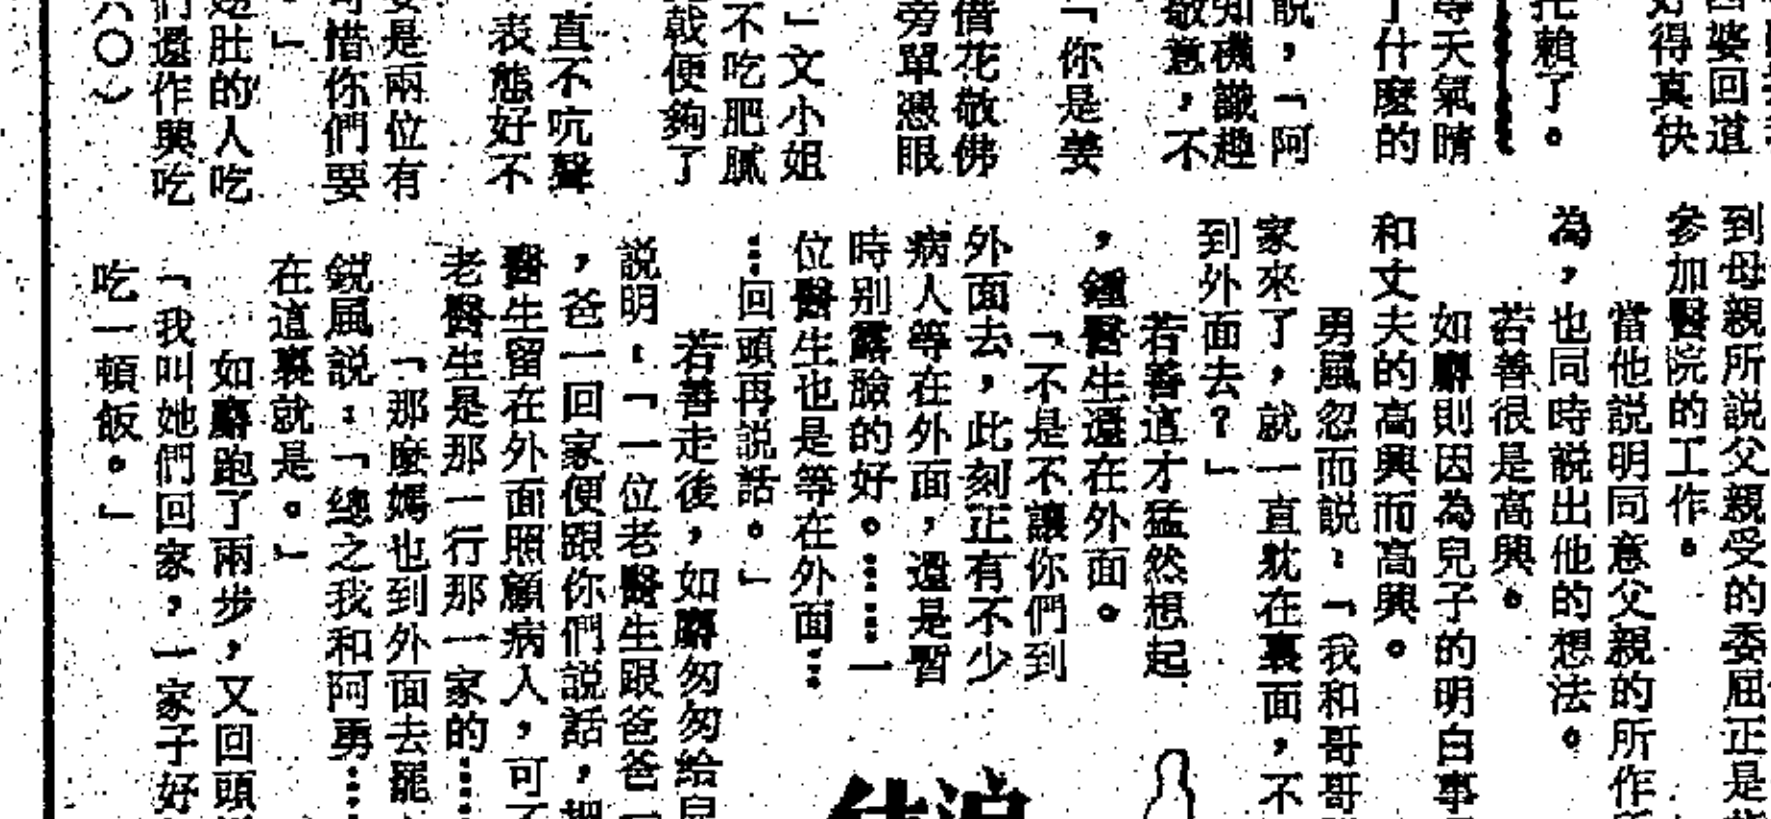 婆回道
好得真快
托賴了。
等天氣晴
了什麼的
說，「阿
知磯識趣
敬意，不
「你是姜
借花敬佛
旁單憑眼
」文小姐
不吃肥膩
戟便夠了
直不吭聲
表態好不
要是兩位有
可惜你們要
」
肚的人吃
們還作興吃
六〇）
到母親所説父親受的委屈正是
參加醫院的工作。
當他説明同意父親的所作
為，也同時説出他的想法。
若善很是高興。
如麝則因為兒子的明白事
和丈夫的高興而高興。
勇風忽而説：「我和哥哥
家來了，就一直躭在裏面，不
到外面去？」
若善這才猛然想起
，鍾醫生還在外面。
「不是不讓你們到
外面去，此刻正有不少
病人等在外面，還是暫
時別露臉的好。……一
位醫生也是等在外面…
…回頭再説話。」
若善走後，如麝匆匆給
説明：「一位老醫生跟爸爸一
，爸一回家便跟你們説話，把
醫生留在外面照顧病人，可
老醫生是那一行那一家的……
「那麼媽也到外面去罷
鋭風説：「總之我和阿勇……
在這裏就是。」
如麝跑了兩步，又回頭
「我叫她們回家，一家子好
吃一頓飯。」